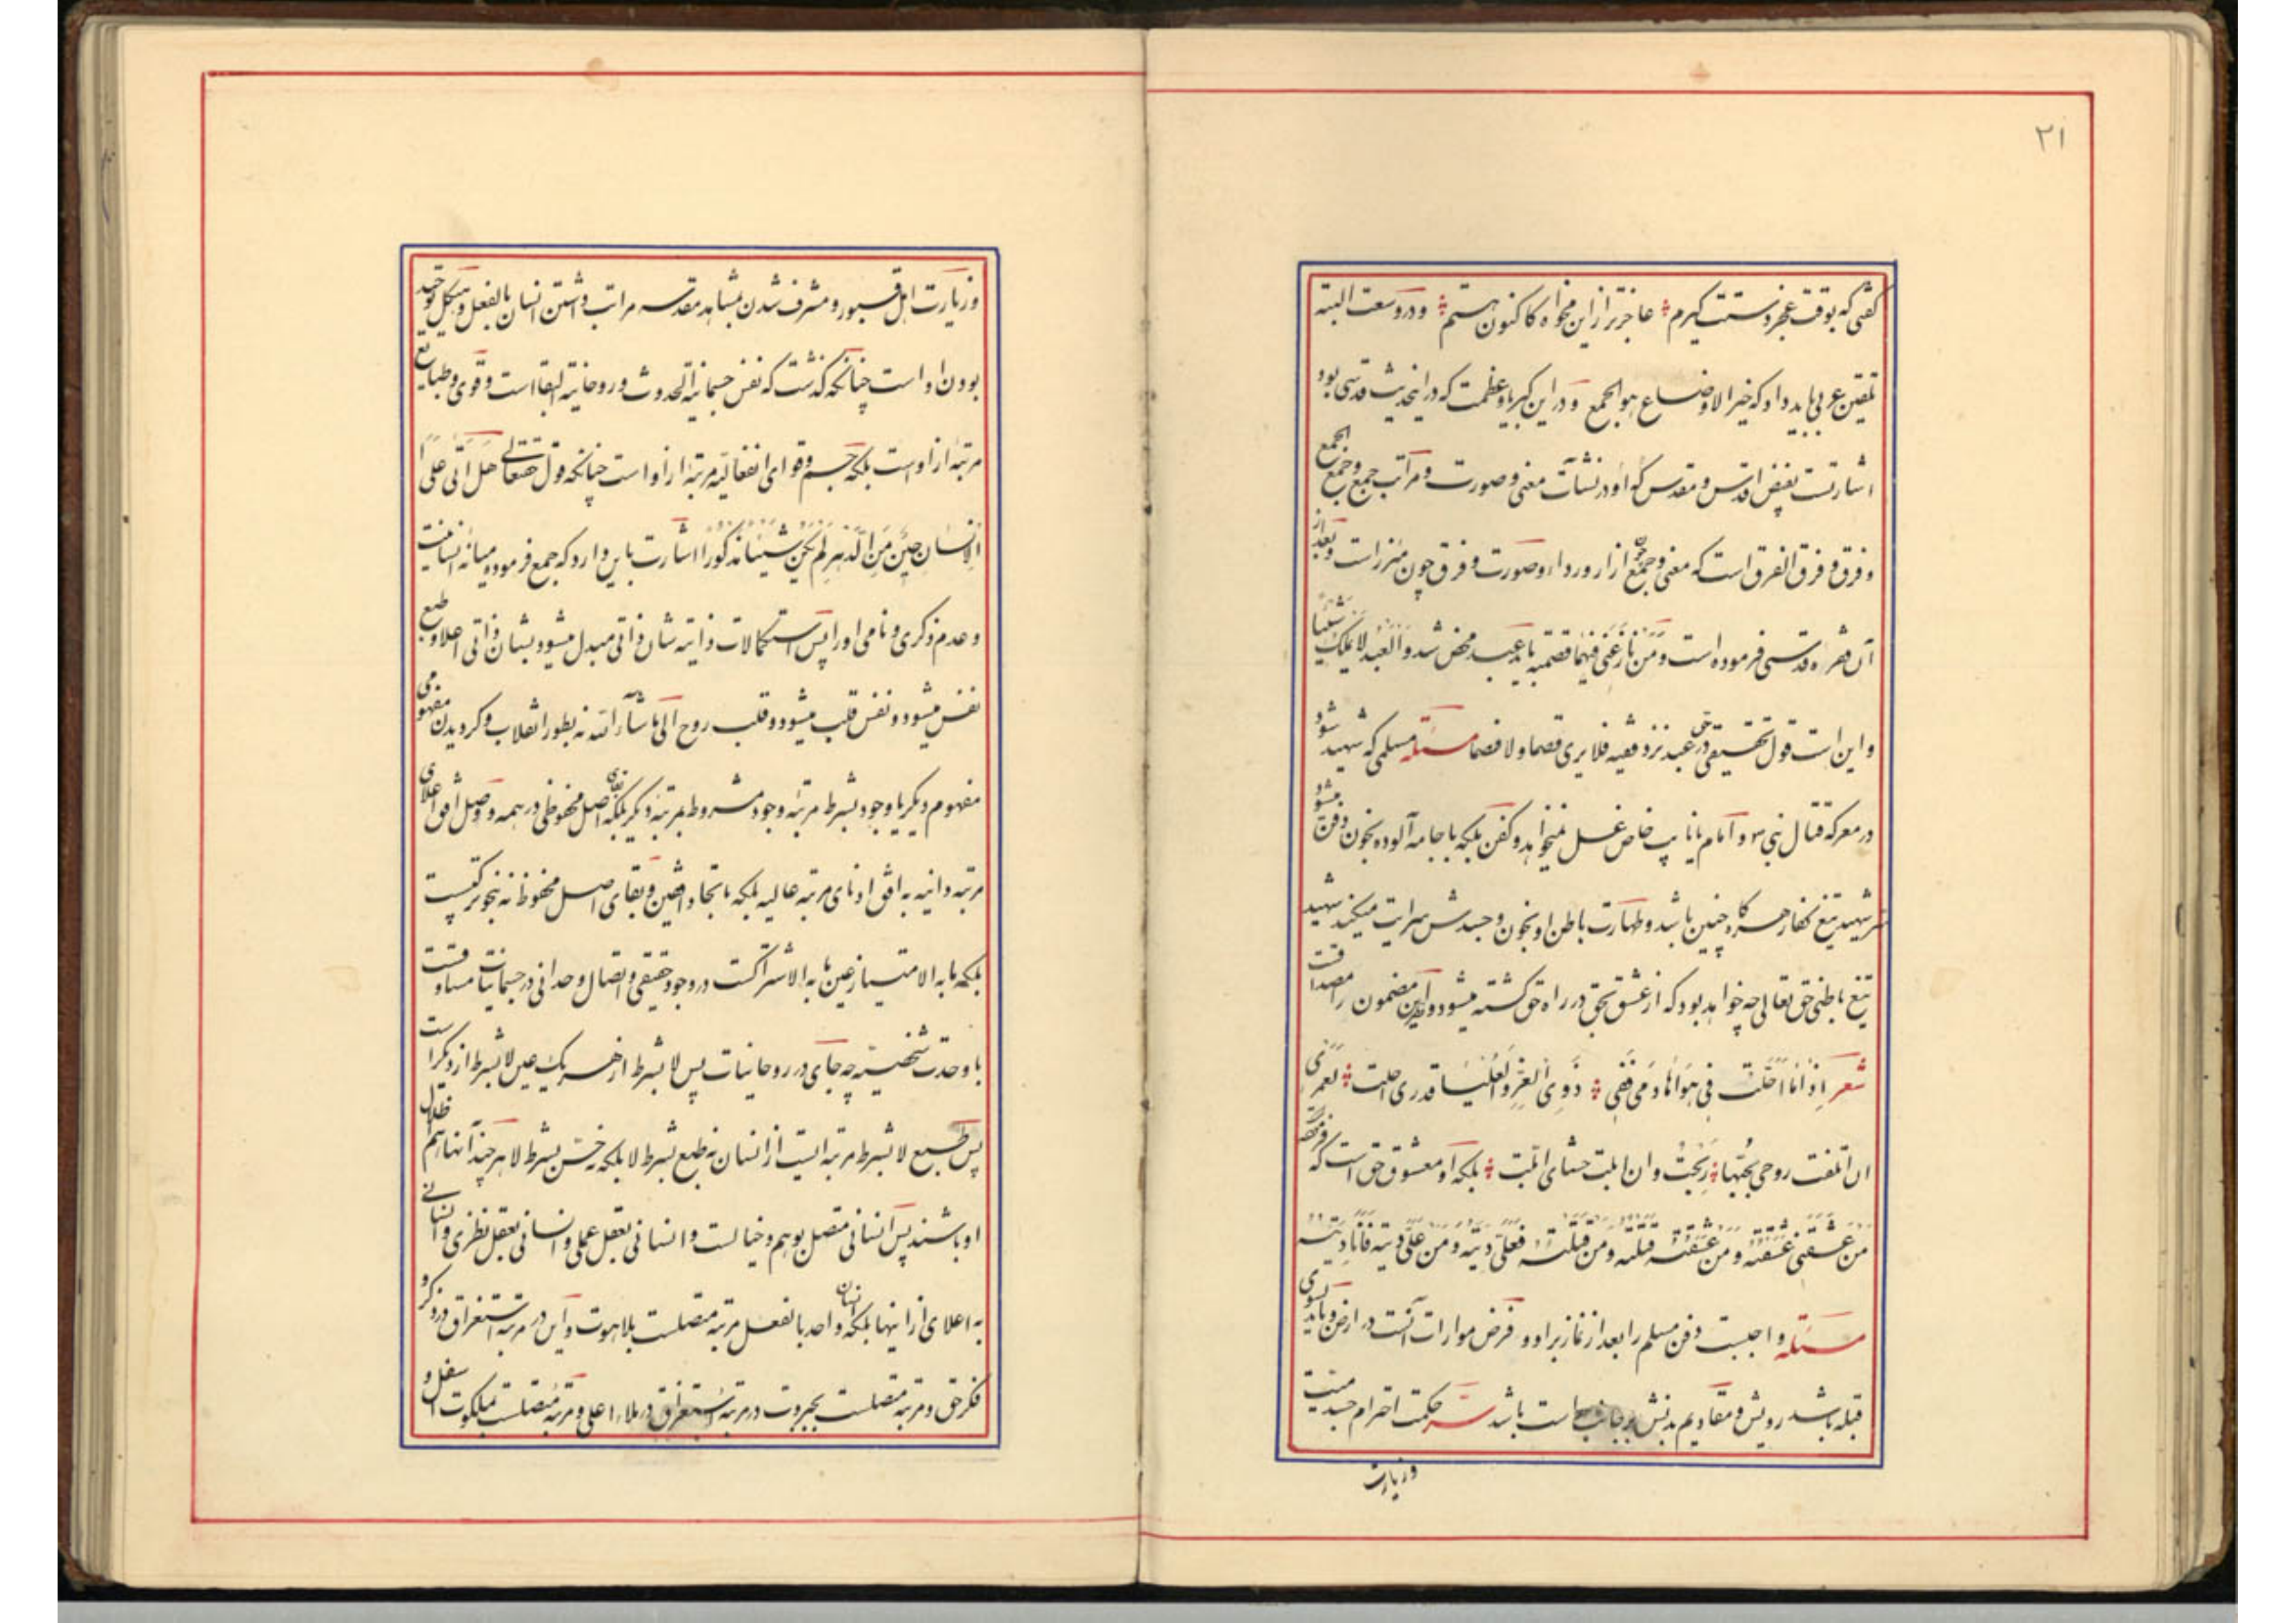 ۲۱
گفتی که بوقت عجز دستت گیرم عاجزتر ازین مخواه کاکنون هستم ودر وسعت البته
تلقین عربی باید داد که خیر الاوضاع هو الجمع ودر این کبریا وعظمت که در اینحدیث قدسی بود
اشارتست بفیض اقدس ومقدس که او در نشآت معنی وصورت ومراتب جمع وجمع الجمع
وفرق وفرق الفرق است که معنی وجمع چون ازار ورداء وصورت وفرق چون مئزر است وبعد از
آن فقره قدسی فرموده است ومن نازعنی فیهما قصمته باید عبد محض شد والعبد لا یملک شیئا
واین است قول تحقیقی در حق عبد نزد فقیه فلا یری قصما ولا فصما مسئله مسلمی که شهید شود
در معرکه قتال نبی ص و امام یا نایب خاص غسل نمیخواهد وکفن بلکه با جامه آلوده بخون دفن میشود
سر شهید تیغ کفار هرگاه چنین باشد وطهارت باطن او بخون وجسدش سرایت میکند شهید
تیغ باطنی حق تعالی چه خواهد بود که از عشق بحق در راه حق کشته میشود واین مضمون را مصداقست
شعر اذا ما احلت فی هواها دمی ففی ذوی العز والعلیا قدری احلت لعمری
ان اتلفت روحی بحبها ربحت وان ابلت حشای ابلت بلکه او معشوق حق است که فرموده
من عشقنی عشقته ومن عشقته قتلته ومن قتلته فعلی دیته ومن علی دیته فانا دیته
مسئله واجبست دفن مسلم را بعد از نماز بر او وفرض مواراتِ آنست در ارض وباید بسوی
قبله باشد رویش ومقادیم بدنش بر جانب راست باشد سر حکمت احترام جسد میت
وزیارت
وزیارت اهل قبور ومشرف شدن بمشاهد مقدسه مراتب داشتن انسان بالفعل وهیکل توحید
بودن او است چنانکه گذشت که نفس جسمانیة الحدوث وروحانیة البقا است وقوی وطبایع
مرتبهٔ از اوست بلکه جسم وقوای انفعالیه مرتبهٔ از او است چنانکه قول حقتعالی هل اتی علی
الانسان حین من الدهر لم یکن شیئا مذکورا اشارت باین دارد که جمع فرموده میانه انسانیت
وعدم ذکری ونامی او را پس استکمالات ذاتیه شان ذاتی مبدل میشود بشان ذاتی اعلا وطبع
نفس میشود ونفس قلب میشود وقلب روح الی ما شاء الله نه بطور انقلاب وگردیدن مفهومی
مفهوم دیگر یا وجود بشرط مرتبه وجود مشروط بمرتبه دیگر بلکه بقای اصل محفوظی در همه ووصل افق اعلای
مرتبه دانیه به افق ادنای مرتبه عالیه بلکه باتحاد افقین وبقای اصل محفوظ نه بنحو ترکیبست
بلکه ما به الامتیاز عین ما به الاشتراکست در وجود حقیقی واتصال وحدانی در جسمانیات مساوقست
با وحدت شخصیه چه جای در روحانیات پس لا بشرط از هر یک عین لا بشرط از دیگر است
پس طبع لا بشرط مرتبه ایست از انسان نه طبع بشرط لا بلکه نه خس بشرط لا هر چند آنها هم اظلال
او باشند پس انسانی متصل بوهم وخیالست وانسانی بعقل عملی وانسانی بعقل نظری وانسانی
به اعلای از اینها بلکه انسان واحد بالفعل مرتبه متصلست بلاهوت واین در مرتبه استغراق در ذکر و
فکر حق ومرتبه متصلست بجبروت در مرتبه استغراق در ملاء اعلی ومرتبه متصلست بملکوت اسفل و